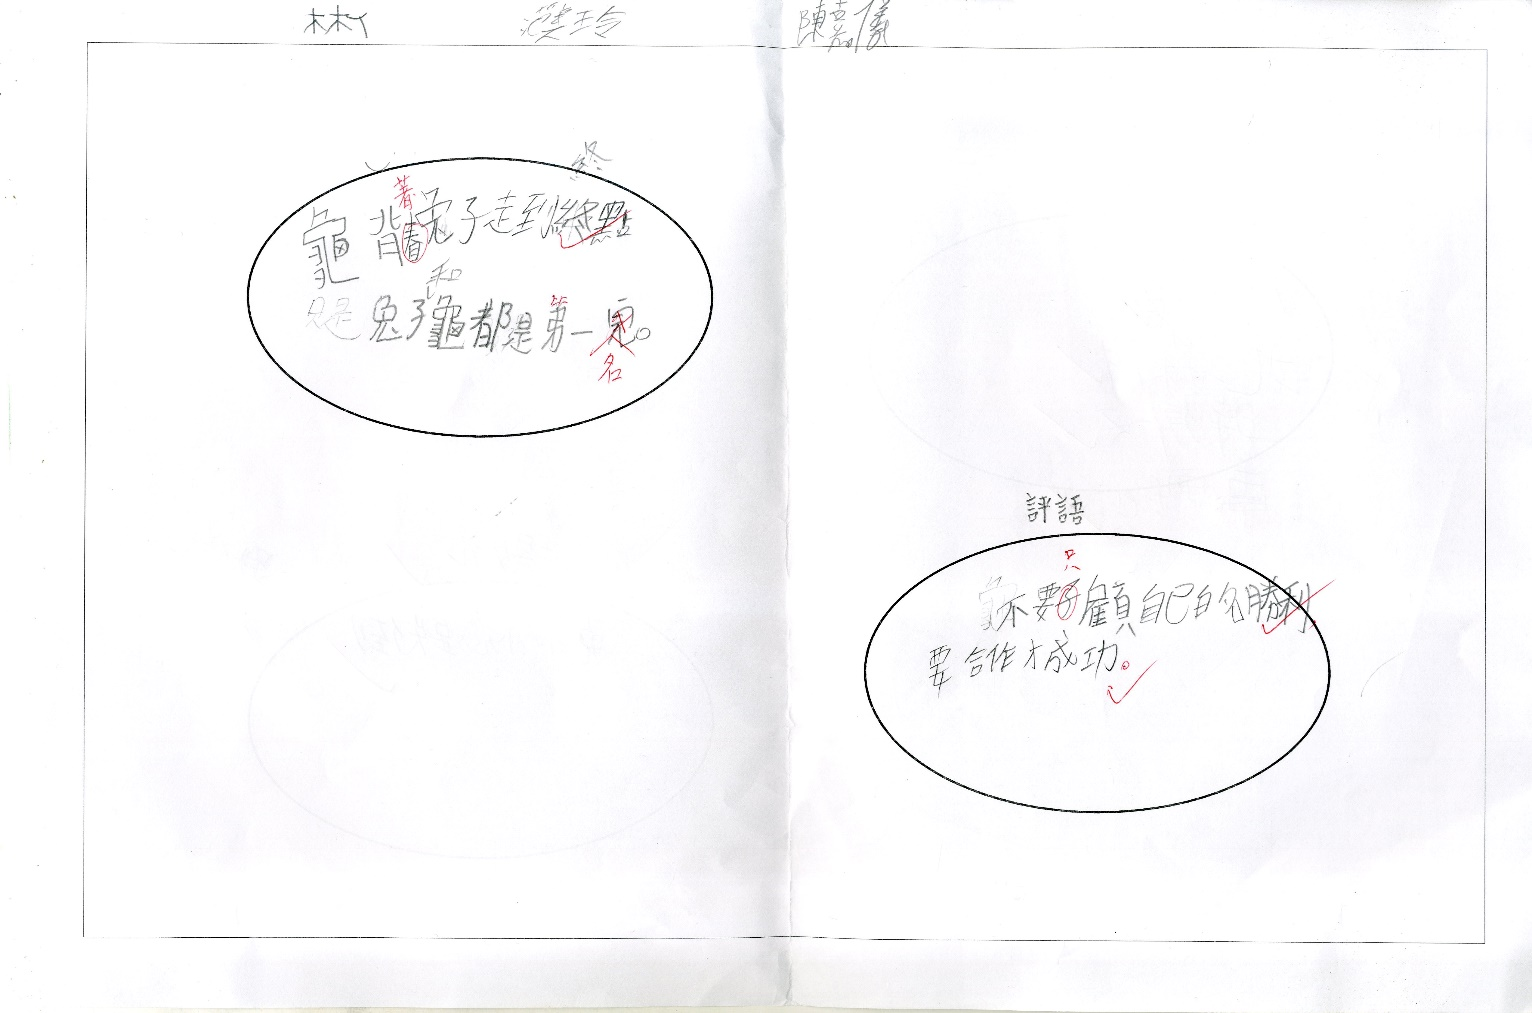 陳嘉儀
終
著
龜背春兔子走到終點
和
兔子龜都是第一
名
評語
只
不要子顧自己的勝利
要合作才成功。